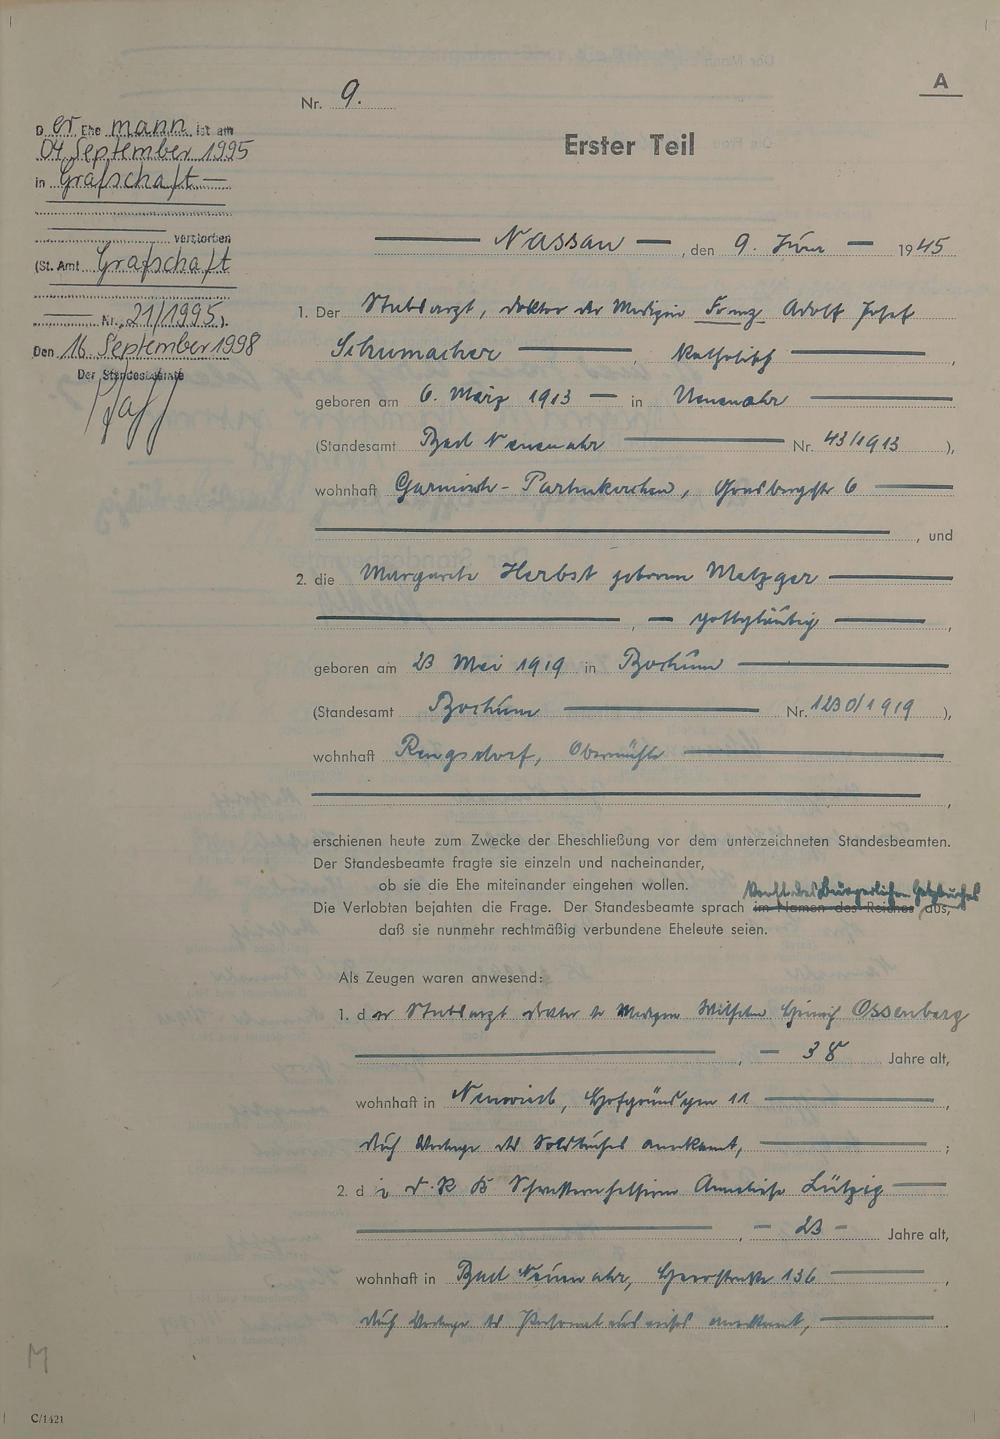 A
Nr. 9.
Erster Teil
Der Ehe mann ist am
04. September 1995
in Grafschaft
verstorben
(St. Amt Grafschaft
Nr. 21/1995).
Den 16. September 1998
Der Standesbeamte
Pfaff
Nassau, den 9. Juni 1945
1. Der Stabsarzt, Doktor der Medizin Franz Adolf Josef
Schumacher, katholisch,
geboren am 6. März 1913 in Neuenahr
(Standesamt Bad Neuenahr Nr. 43/1913),
wohnhaft Garmisch-Partenkirchen, 6
, und
2. die Margarete Herbst geborene Metzger
, gottgläubig,
geboren am 23 Mai 1919 in Bochum
(Standesamt Bochum Nr. 1230/1919),
wohnhaft Rengsdorf, Obermühle
,
erschienen heute zum Zwecke der Eheschließung vor dem unterzeichneten Standesbeamten.
Der Standesbeamte fragte sie einzeln und nacheinander,
ob sie die Ehe miteinander eingehen wollen.
des Bürgerlichen Gesetzbuches
Die Verlobten bejahten die Frage. Der Standesbeamte sprach im Namen des Reiches aus,
daß sie nunmehr rechtmäßig verbundene Eheleute seien.
Als Zeugen waren anwesend:
1. der Stabsarzt Doktor der Medizin Wilhelm Heinrich Ossenberg
, 38 Jahre alt,
wohnhaft in Neuwied, 11,
durch Vorlage des Soldbuches anerkannt,;
2. die D.R.K. Schwesternhelferin Anneliese Lützig
, 23 Jahre alt,
wohnhaft in Bad Neuenahr, Heerstraße 136,
durch Vorlage des Personalausweises anerkannt,.
M
C/1421